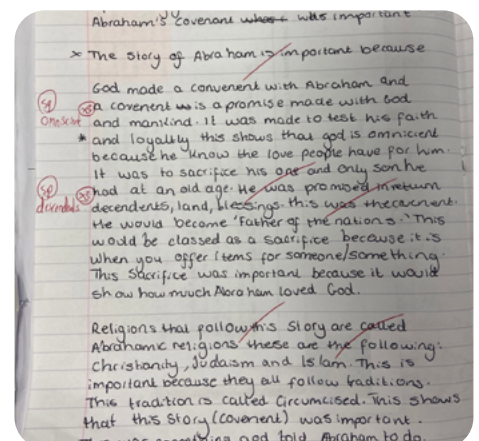 Abraham's covenant was important
* The story of Abraham is important because
God made a convenent with Abraham and
a covenent is a promise made with God
and mankind. It was made to test his faith
* and loyalty this shows that god is omnicient
because he know the love people have for him.
It was to sacrifice his one and only son he
had at an old age. He was promised in return
decendents, land, blessings. this was the covenant.
He would become 'Father of the nations.' This
would be classed as a sacrifice because it is
when you offer items for someone/something.
This sacrifice was important because it would
show how much Abraham loved God.
Religions that follow this story are called
Abrahamic religions these are the following:
Christianity, Judaism and Islam. This is
important because they all follow traditions.
This tradition is called Circumcised. This shows
that this story (covenent) was important.
god told Abraham to do.
sp
sp